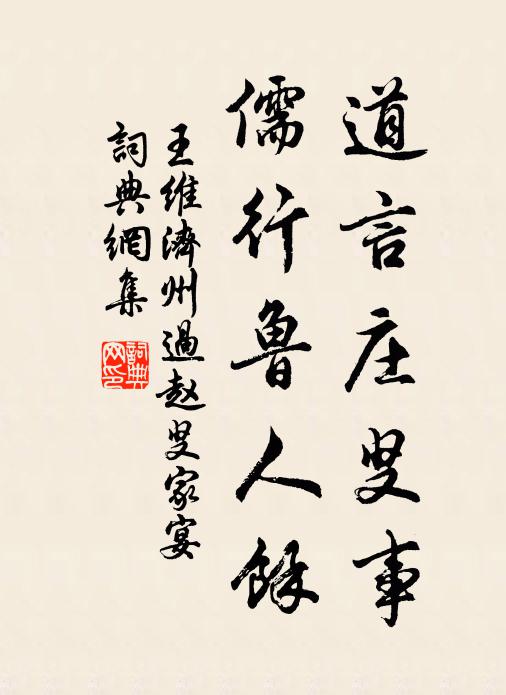 道言庄叟事
儒行鲁人餘
王维濟州過赵叟家宴
詞典網集
詞典网印